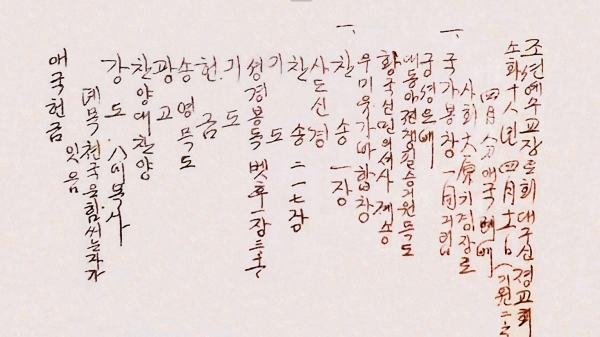 조선예수교장로회대구신정교회
소화十八년四月十一日 (기원二六
四月分애국례배
사회 大原기정장로
一、국가봉창 一同기립
궁성요배
대동아전쟁필승기원묵도
황국신민의서사 제송
우미유가바합창
一、찬송 一장
사도신경
찬송 二一七장
기도
성경봉독 벳후一장三절
기도
헌금
송영묵도
광고
찬양대찬양
강도 목사
데목 천국은힘써는자가
잇음
애국헌금